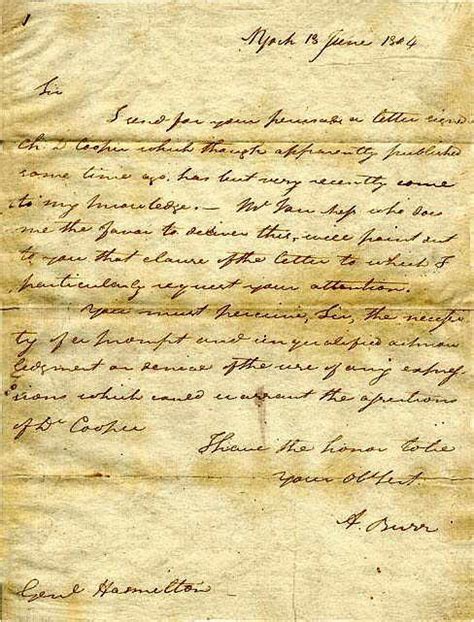 1
N York 18 June 1804
Sir
I send for your perusal a letter signed
Ch. D Cooper which though apparently published
some time ago, has but very recently come
to my knowledge. — Mr Van Ness who does
me the favor to deliver this, will point out
to you that clause of the letter to which I
particularly request your attention.
You must perceive, Sir, the necessi
ty of a prompt and unqualified acknow
ledgment or denial of the use of any expres
sions which could warrant the assertions
of Dr Cooper
I have the honor to be
Your Obt st
A. Burr
Genl Hamilton